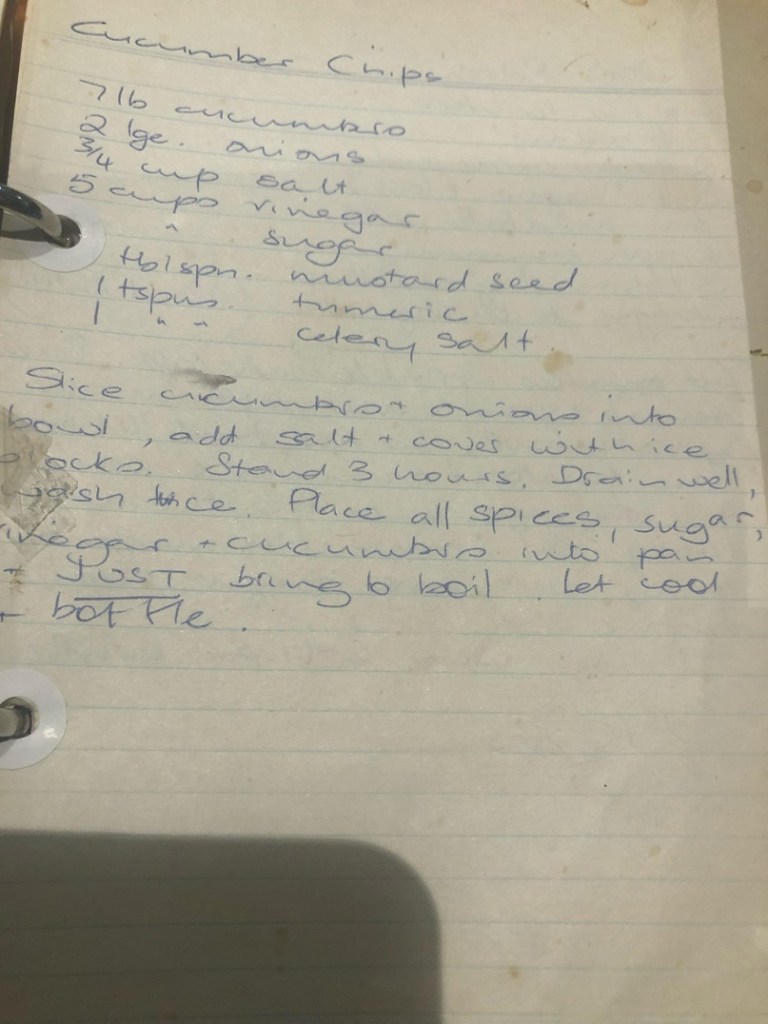 Cucumber Chips
7 lb cucumbers
2 lge. onions
3/4 cup salt
5 cups vinegar
" sugar
tblspn. mustard seed
1 tspns. tumeric
1 " " celery salt.
Slice cucumbers + onions into
bowl, add salt + cover with ice
blocks. Stand 3 hours. Drain well,
wash twice. Place all spices, sugar,
vinegar + cucumbers into pan
+ JUST bring to boil. Let cool
+ bottle.